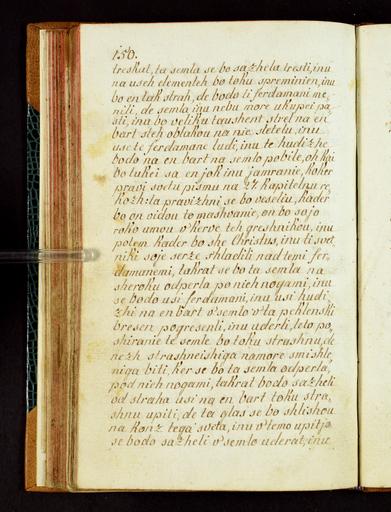 150.
treskat, ta semla se bo sazhela tresti, inu
na useh elementeh bo toku spreminien, inu
bo en tak strah, de bodo ti ferdamani me,
nili, de semla inu nebu more ukupei pa,
sti, inu bo veliku taushent strel na en
bart s teh oblakou na nie sletelu, inu
use te ferdamane ludi, inu te hudizhe
bodo na en bart na semlo pobile, oh kai
bo tukei sa en jok inu jamranie, koker
pravi svetu pismu na 27. kapitelnu, re,
kozh: ta pravizhni se bo veseliu, kader
bo on vidou to mashvanie, on bo sojo
roko umou v'kerve teh greshnikou, inu
potem kader bo she Christus, inu ti sve,
niki soje serze shladili nad temi fer,
damanemi, takrat se bo ta semla na
sheroku odperla po nich nogami, inu
se bodo usi ferdamani, inu usi hudi,
zhi na en bart v'semlo v'ta pehlenski
bresen pogresenli, inu uderli, leto po,
shiranie te semle bo toku strashnu, de
nezh strashneishiga namore smishle,
niga biti, ker se bo ta semla odperla,
pod nich nogami, takrat bodo sazheli
od straha usi na en bart toku stra,
shnu upiti, de ta glas se bo shlishou
na konz tega sveta, inu v'temo upitjo
se bodo sazheli v'semlo uderat, inu